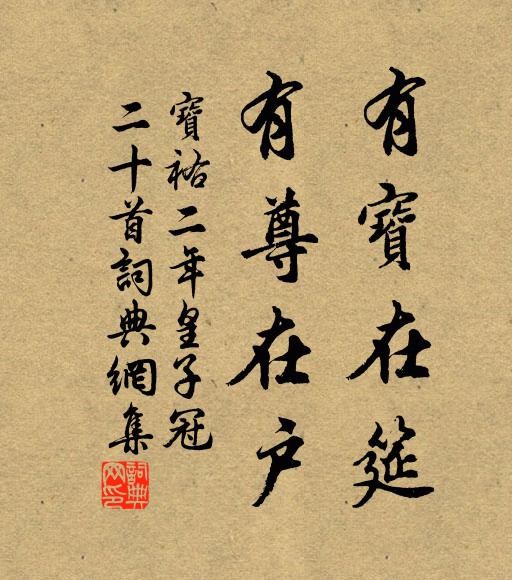 有寶在筵
有尊在户
寶祐二年皇子冠
二十首詞典網集
詞典網印